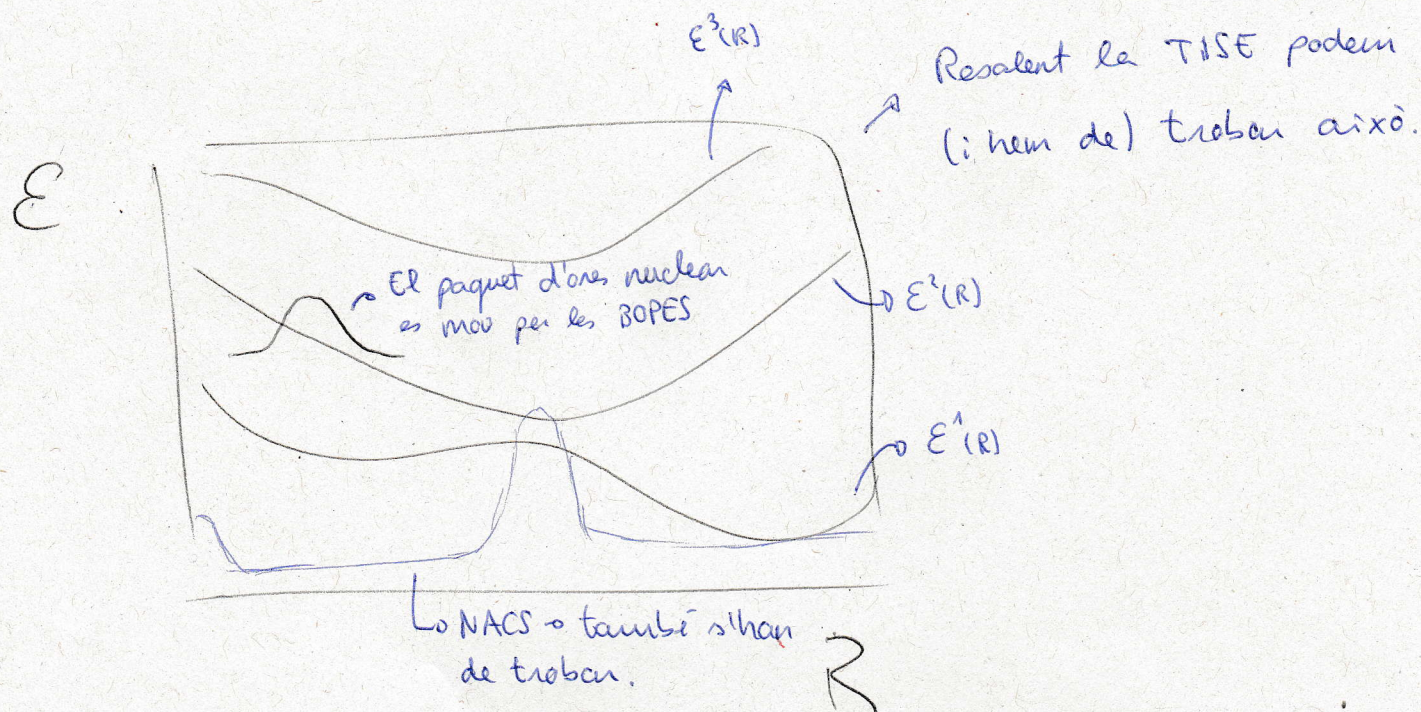 ε³(R)
Resolent la TISE podem
(i hem de) trobar això.
ε
El paquet d'ones nuclear
es mou per les BOPES
ε²(R)
ε¹(R)
NACS → també s'han
de trobar.
R